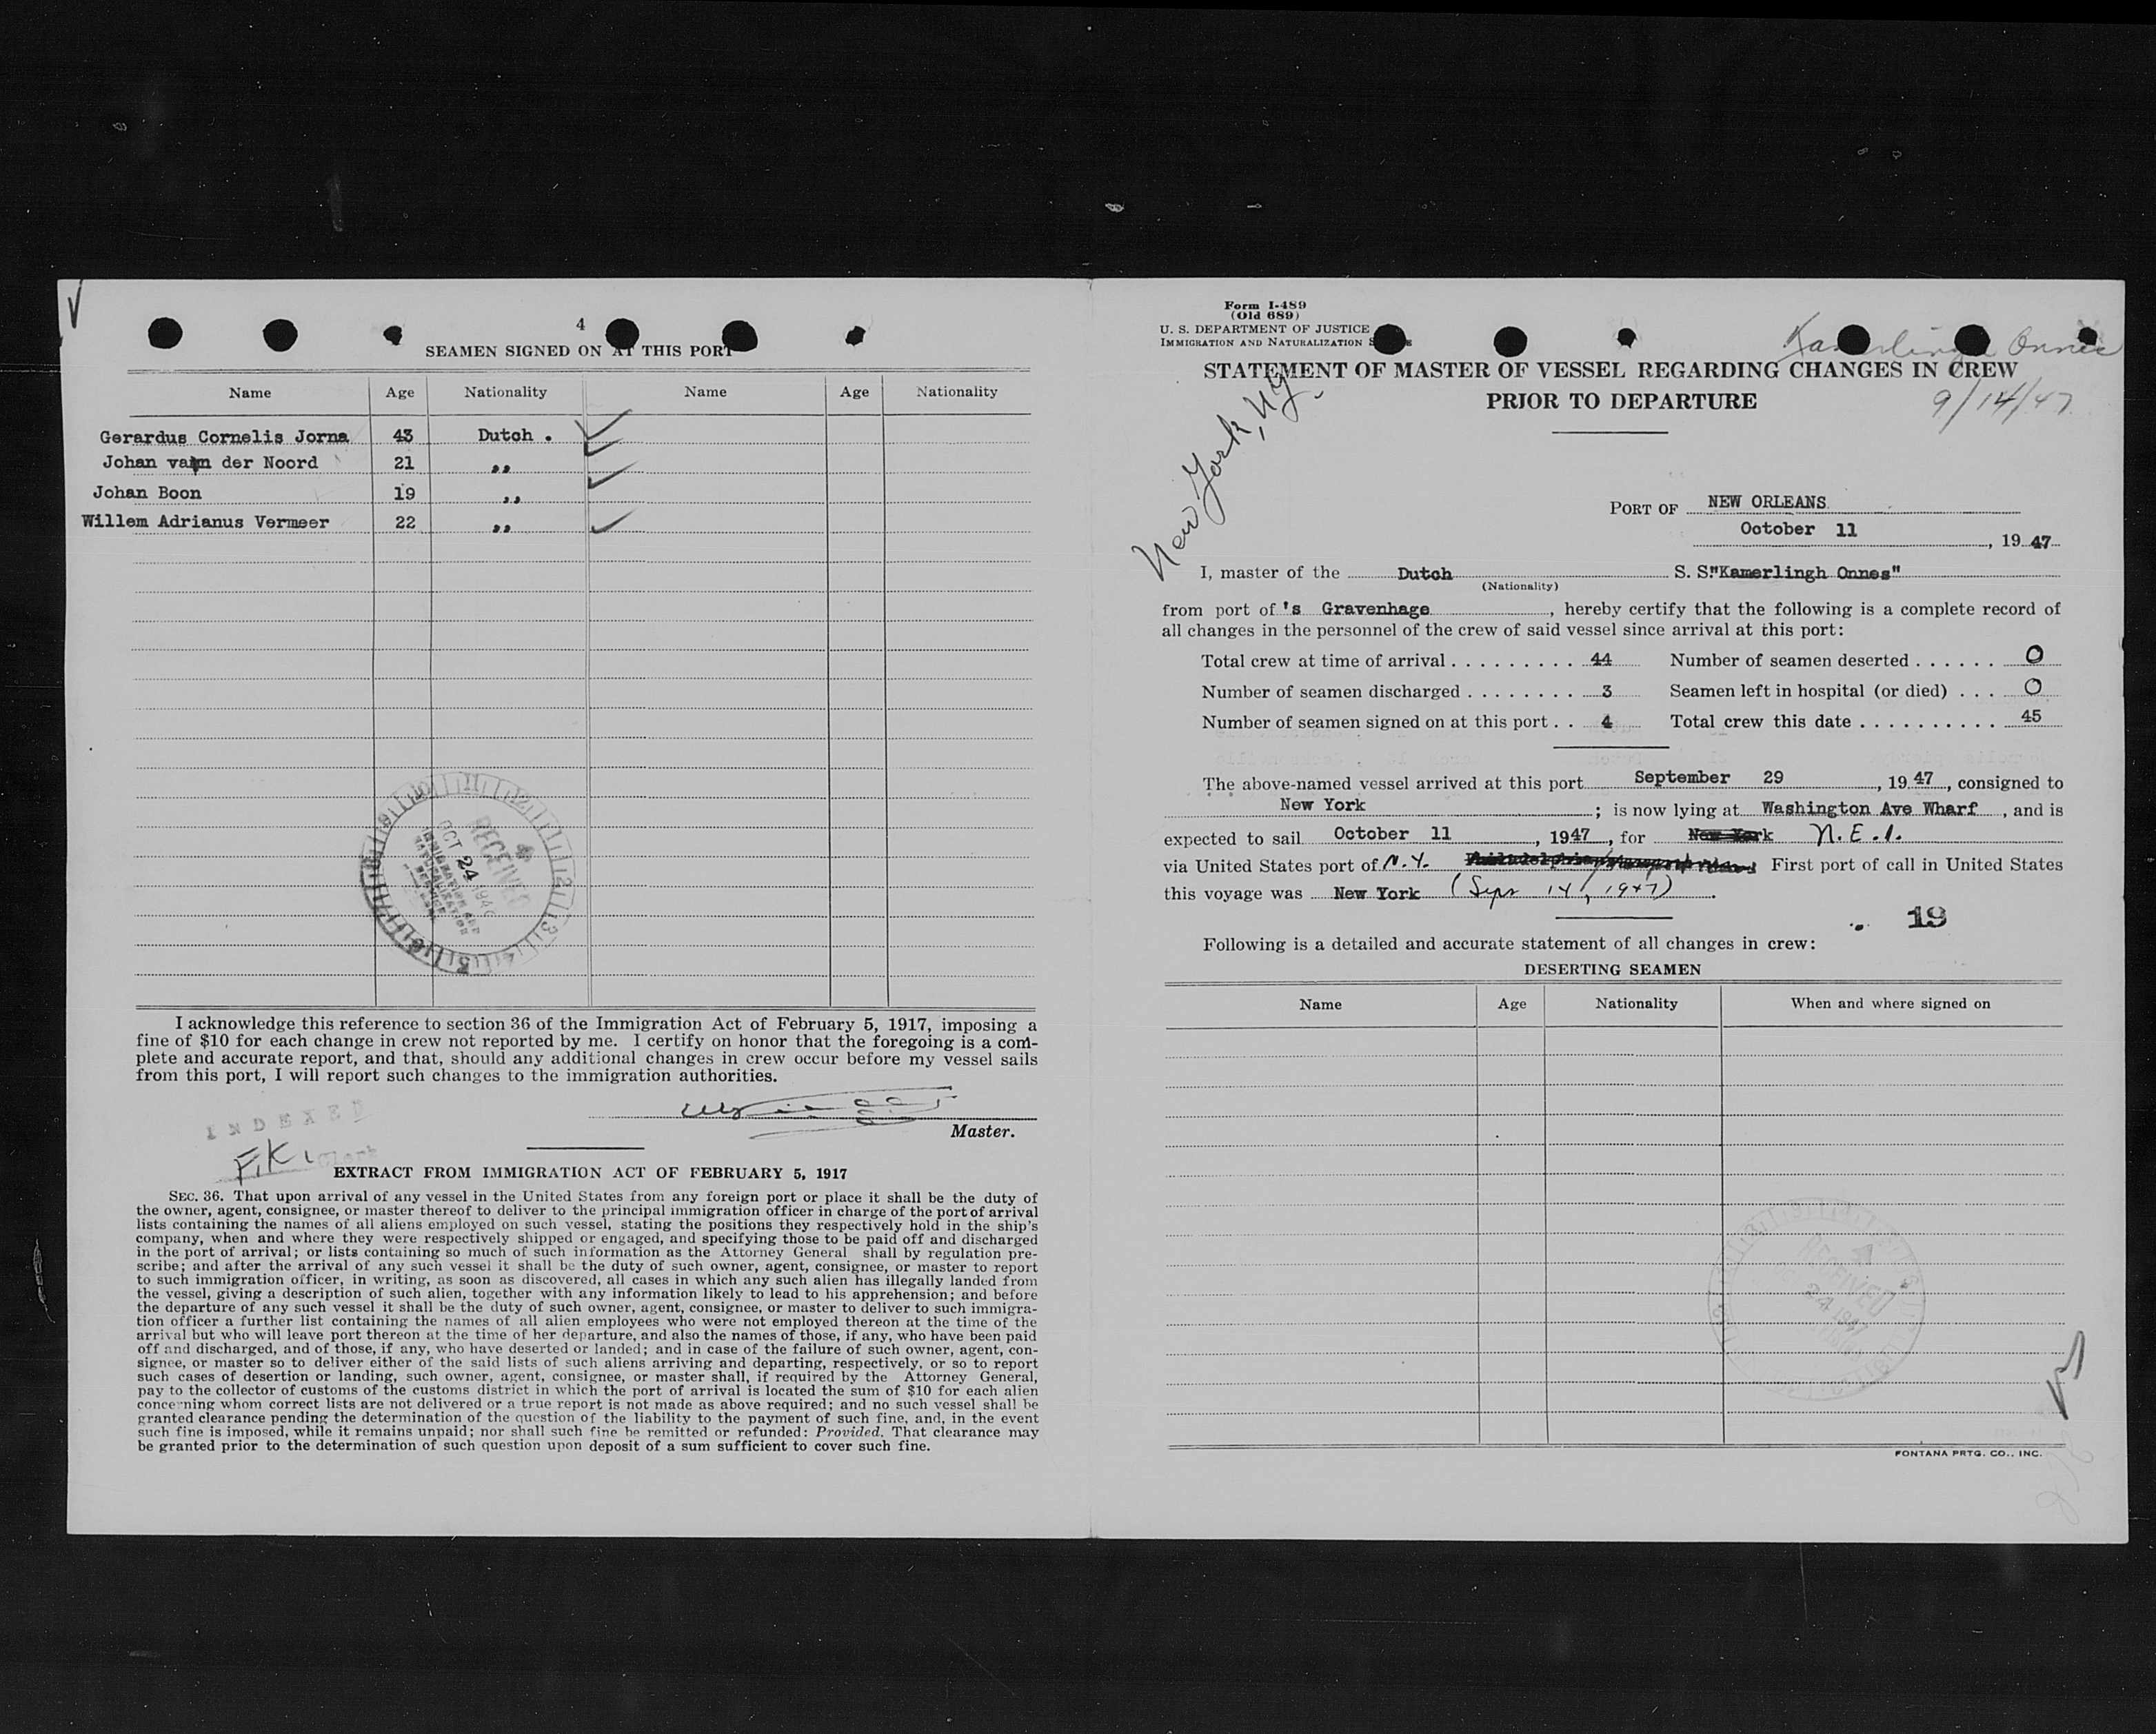 4
SEAMEN SIGNED ON AT THIS PORT
Name Age Nationality Name Age Nationality
Gerardus Cornelis Jorna 43 Dutch .
Johan van der Noord 21 ,,
Johan Boon 19 ,,
Willem Adrianus Vermeer 22 ,,
RECEIVED
OCT 24 194
IMMIGRATION AND
NATURALIZATION
SERVICE
I acknowledge this reference to section 36 of the Immigration Act of February 5, 1917, imposing a
fine of $10 for each change in crew not reported by me. I certify on honor that the foregoing is a com-
plete and accurate report, and that, should any additional changes in crew occur before my vessel sails
from this port, I will report such changes to the immigration authorities.
Master.
INDEXED
F.K. Clerk
EXTRACT FROM IMMIGRATION ACT OF FEBRUARY 5, 1917
SEC. 36. That upon arrival of any vessel in the United States from any foreign port or place it shall be the duty of
the owner, agent, consignee, or master thereof to deliver to the principal immigration officer in charge of the port of arrival
lists containing the names of all aliens employed on such vessel, stating the positions they respectively hold in the ship's
company, when and where they were respectively shipped or engaged, and specifying those to be paid off and discharged
in the port of arrival; or lists containing so much of such information as the Attorney General shall by regulation pre-
scribe; and after the arrival of any such vessel it shall be the duty of such owner, agent, consignee, or master to report
to such immigration officer, in writing, as soon as discovered, all cases in which any such alien has illegally landed from
the vessel, giving a description of such alien, together with any information likely to lead to his apprehension; and before
the departure of any such vessel it shall be the duty of such owner, agent, consignee, or master to deliver to such immigra-
tion officer a further list containing the names of all alien employees who were not employed thereon at the time of the
arrival but who will leave port thereon at the time of her departure, and also the names of those, if any, who have been paid
off and discharged, and of those, if any, who have deserted or landed; and in case of the failure of such owner, agent, con-
signee, or master so to deliver either of the said lists of such aliens arriving and departing, respectively, or so to report
such cases of desertion or landing, such owner, agent, consignee, or master shall, if required by the Attorney General,
pay to the collector of customs of the customs district in which the port of arrival is located the sum of $10 for each alien
concerning whom correct lists are not delivered or a true report is not made as above required; and no such vessel shall be
granted clearance pending the determination of the question of the liability to the payment of such fine, and, in the event
such fine is imposed, while it remains unpaid; nor shall such fine be remitted or refunded: Provided, That clearance may
be granted prior to the determination of such question upon deposit of a sum sufficient to cover such fine.
Form I-489
(Old 689)
U. S. DEPARTMENT OF JUSTICE
IMMIGRATION AND NATURALIZATION
Kamerlingh Onnes
STATEMENT OF MASTER OF VESSEL REGARDING CHANGES IN CREW
PRIOR TO DEPARTURE
9/14/47
New York, N.Y.
PORT OF NEW ORLEANS
October 11, 1947
I, master of the Dutch S. S. "Kamerlingh Onnes"
(Nationality)
from port of 's Gravenhage, hereby certify that the following is a complete record of
all changes in the personnel of the crew of said vessel since arrival at this port:
Total crew at time of arrival . . . . . . . . . . 44 Number of seamen deserted . . . . . . 0
Number of seamen discharged . . . . . . . . 3 Seamen left in hospital (or died) . . . 0
Number of seamen signed on at this port . . 4 Total crew this date . . . . . . . . . . 45
The above-named vessel arrived at this port September 29, 1947, consigned to
New York; is now lying at Washington Ave Wharf, and is
expected to sail October 11, 1947, for New York N.E.I.
via United States port of N.Y. First port of call in United States
this voyage was New York (Sept 14, 1947).
19
Following is a detailed and accurate statement of all changes in crew:
DESERTING SEAMEN
Name Age Nationality When and where signed on
RECEIVED
24 1947
FONTANA PRTG. CO., INC.